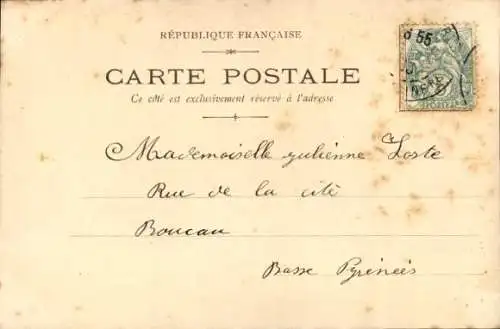 RÉPUBLIQUE FRANÇAISE
CARTE POSTALE
Ce côté est exclusivement réservé à l'adresse
Mademoiselle Julienne Loste
Rue de la cité
Boucau
Basse Pyrénées
55